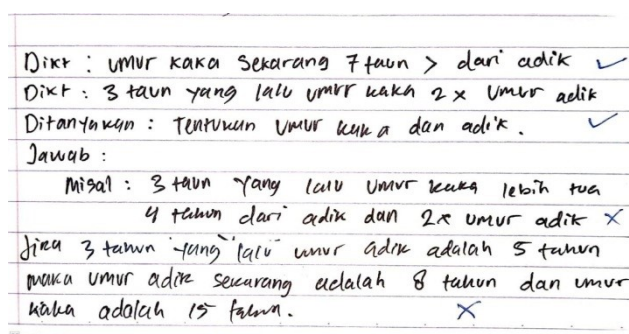 Dikt : umur kaka sekarang 7 taun > dari adik ✓
Dikt : 3 taun yang lalu umur kaka 2 x umur adik
Ditanyakan : Tentukan umur kaka dan adik. ✓
Jawab :
Misal : 3 taun yang lalu umur kaka lebih tua
4 tahun dari adik dan 2x umur adik ×
Jika 3 tahun yang lalu umur adik adalah 5 tahun
maka umur adik sekarang adalah 8 tahun dan umur
kaka adalah 15 tahun. ×